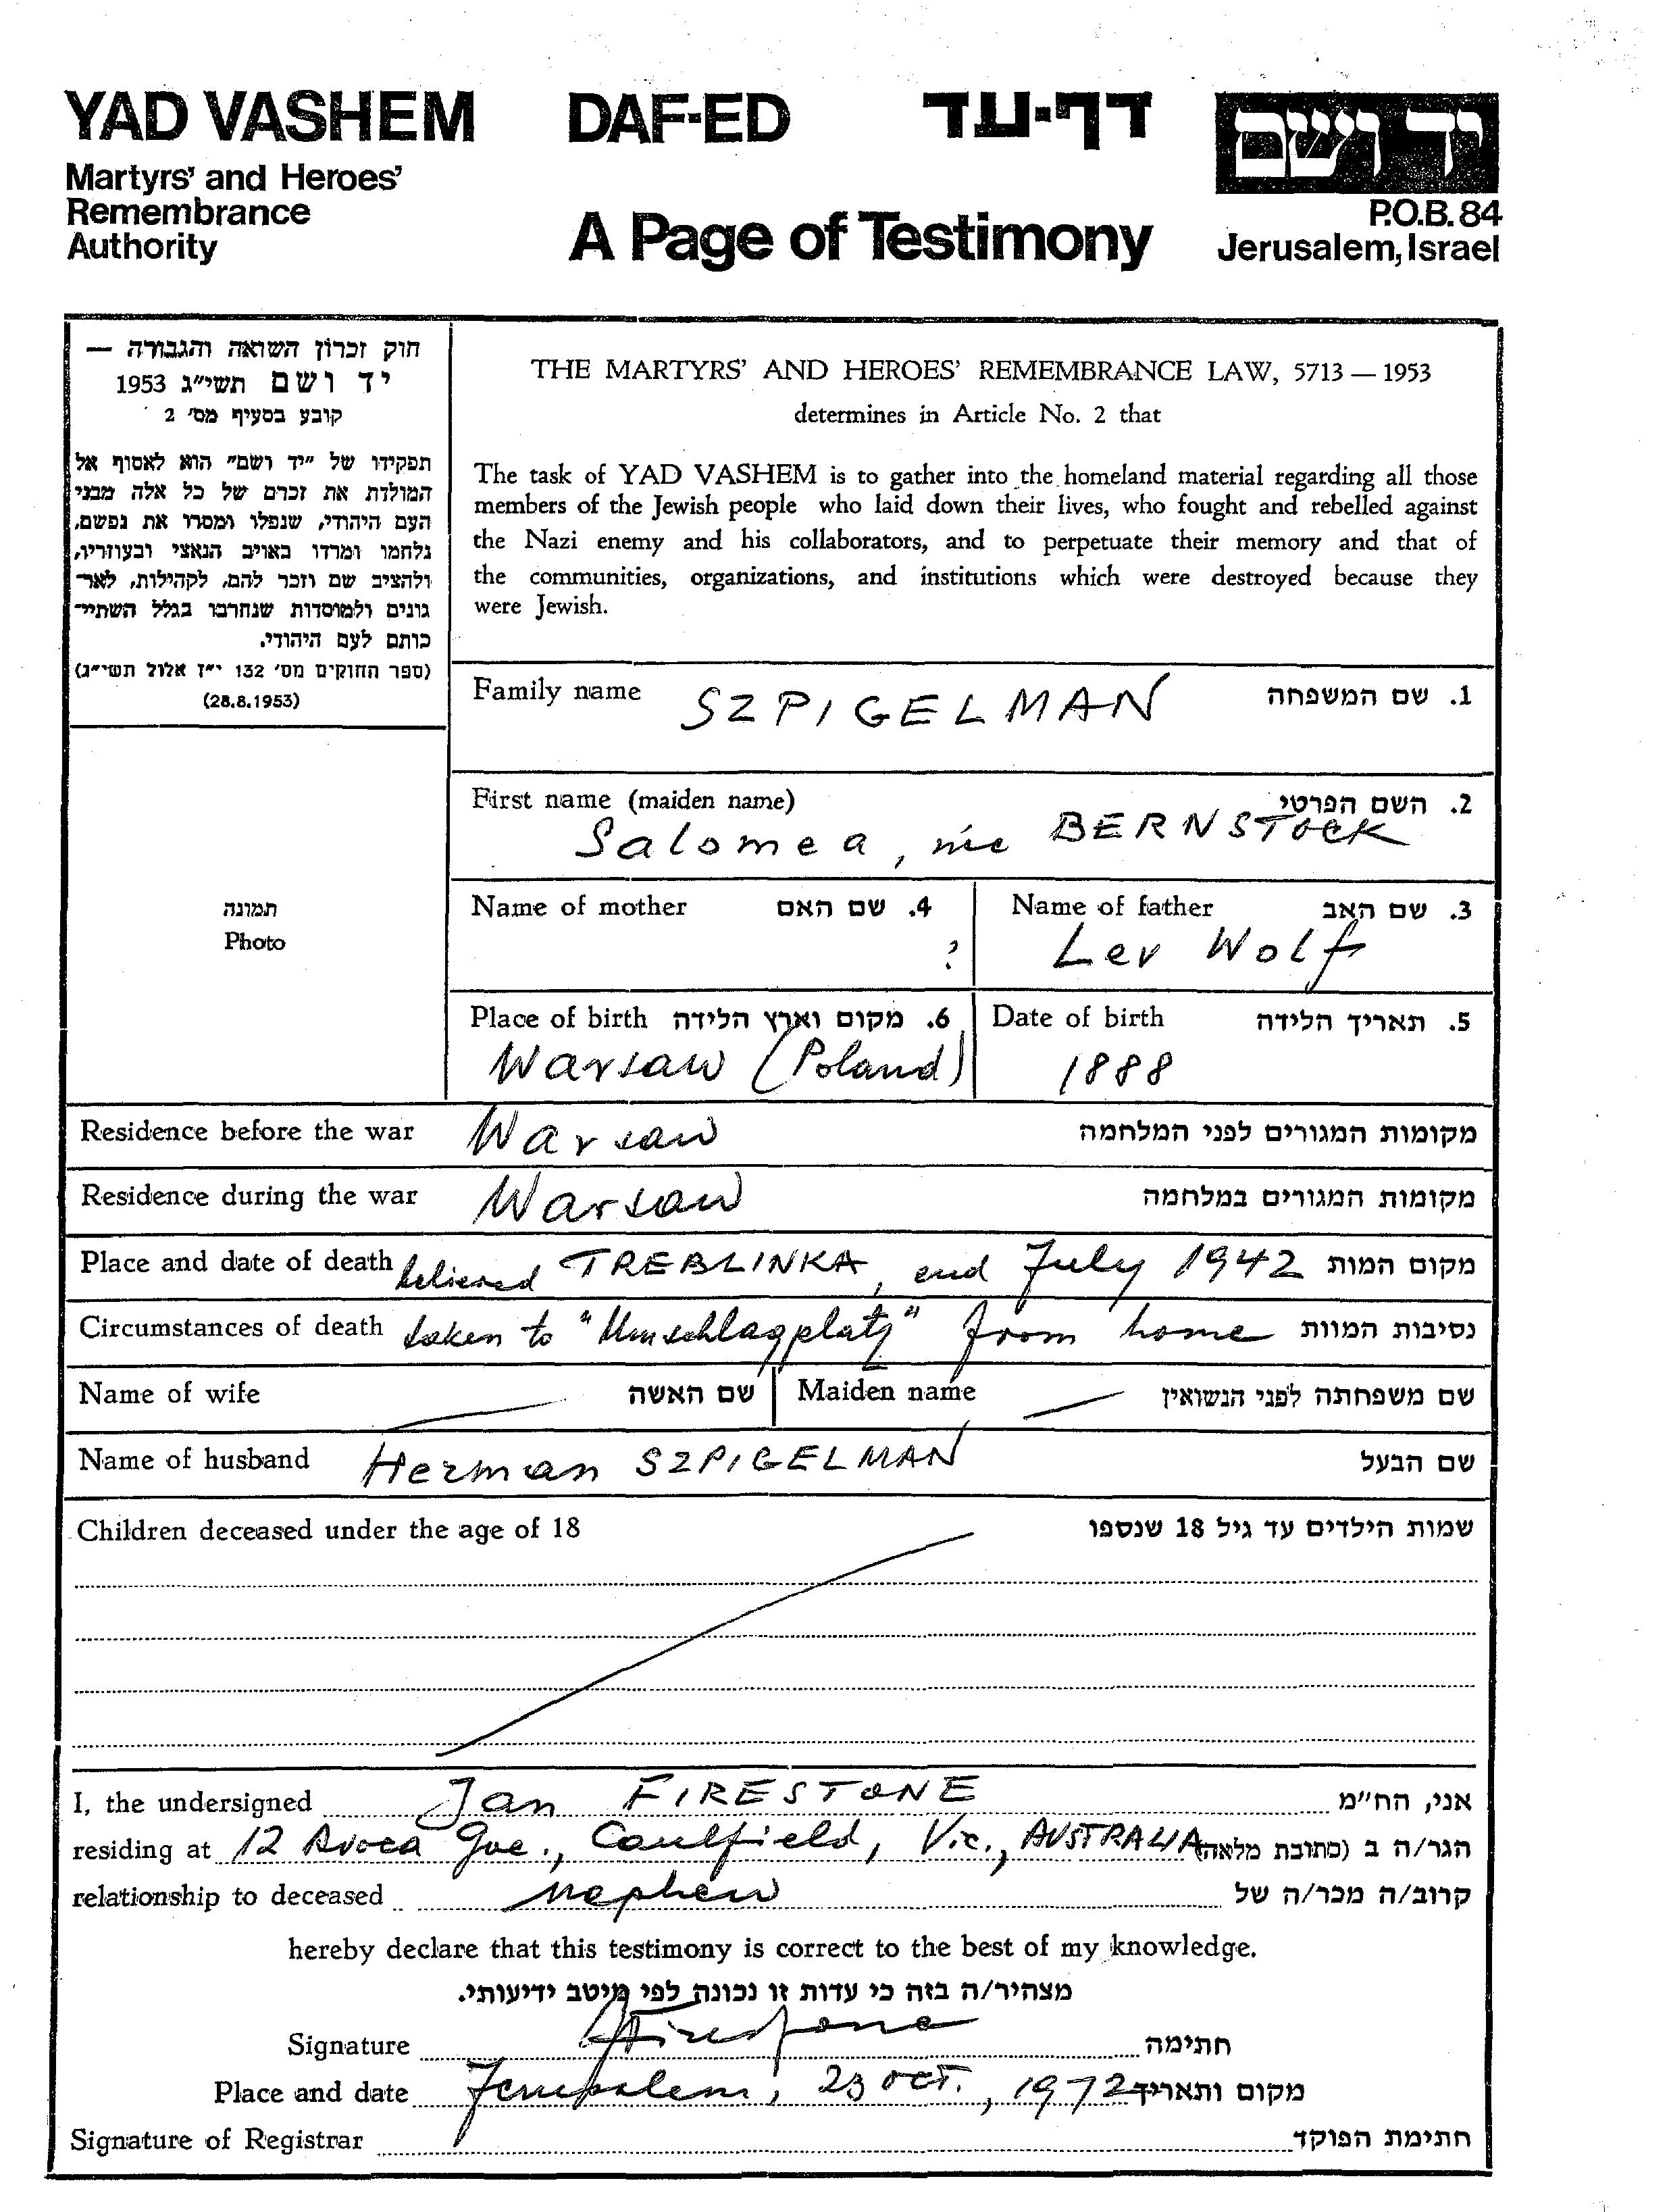 YAD VASHEM DAF-ED דף-עד יד ושם
Martyrs' and Heroes'
Remembrance
Authority
A Page of Testimony
P.O.B. 84
Jerusalem, Israel
חוק זכרון השואה והגבורה —
יד ושם תשי"ג 1953
קובע בסעיף מס' 2
תפקידו של "יד ושם" הוא לאסוף אל
המולדת את זכרם של כל אלה מבני
העם היהודי, שנפלו ומסרו את נפשם,
נלחמו ומרדו באויב הנאצי ובעוזריו,
ולהציב שם וזכר להם, לקהילות, לאר-
גונים ולמוסדות שנחרבו בגלל השתיי-
כותם לעם היהודי.
(ספר החוקים מס' 132 י"ז אלול תשי"ג)
(28.8.1953)
THE MARTYRS' AND HEROES' REMEMBRANCE LAW, 5713 — 1953
determines in Article No. 2 that
The task of YAD VASHEM is to gather into the homeland material regarding all those
members of the Jewish people who laid down their lives, who fought and rebelled against
the Nazi enemy and his collaborators, and to perpetuate their memory and that of
the communities, organizations, and institutions which were destroyed because they
were Jewish.
תמונה
Photo
Family name SZPIGELMAN 1. שם המשפחה
First name (maiden name) 2. השם הפרטי
Salomea, née BERNSTOCK
Name of mother 4. שם האם
?
Name of father 3. שם האב
Lev Wolf
Place of birth 6. מקום וארץ הלידה
Warsaw (Poland)
Date of birth 5. תאריך הלידה
1888
Residence before the war Warsaw מקומות המגורים לפני המלחמה
Residence during the war Warsaw מקומות המגורים במלחמה
Place and date of death believed TREBLINKA, end July 1942 מקום המות
Circumstances of death taken to "Umschlagplatz" from home נסיבות המוות
Name of wife שם האשה Maiden name שם משפחתה לפני הנשואין
Name of husband Herman SZPIGELMAN שם הבעל
Children deceased under the age of 18 שמות הילדים עד גיל 18 שנספו
I, the undersigned Jan FIRESTONE אני, הח"מ
residing at 12 Avoca Gve., Caulfield, Vic., AUSTRALIA הגר/ה ב (כתובת מלאה)
relationship to deceased nephew קרוב/ה מכר/ה של
hereby declare that this testimony is correct to the best of my knowledge.
מצהיר/ה בזה כי עדות זו נכונה לפי מיטב ידיעותי.
Signature Firestone חתימה
Place and date Jerusalem, 23 oct., 1972 מקום ותאריך
Signature of Registrar חתימת הפוקד